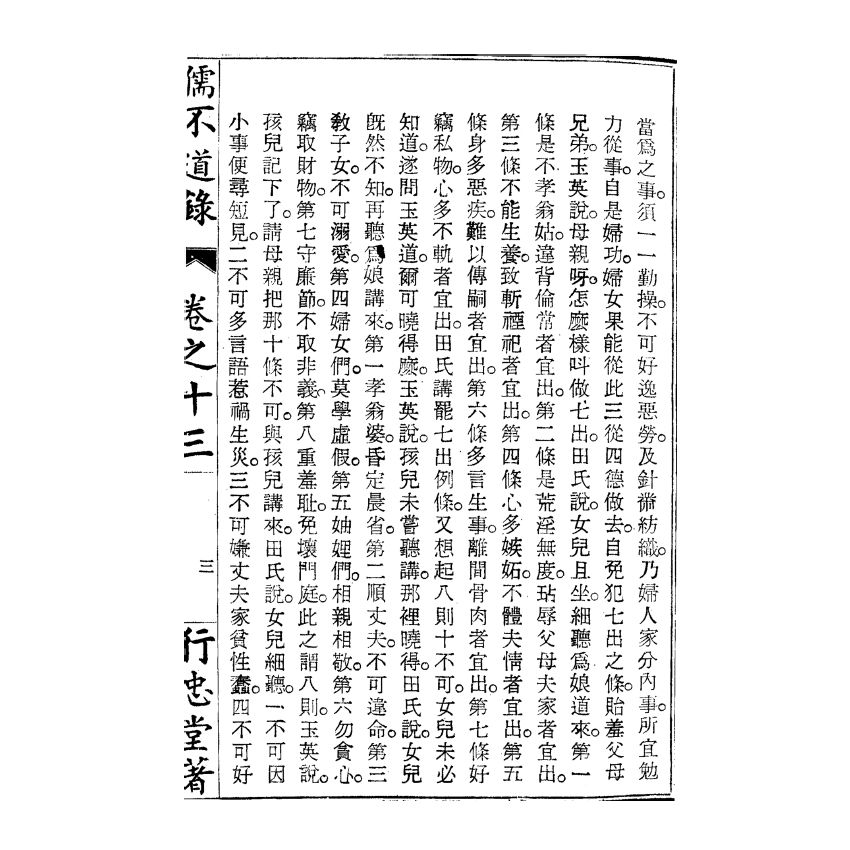 當爲之事。須一一勤操。不可好逸惡勞。及針黹紡織。乃婦人家分內事。所宜勉
力從事。自是婦功。婦女果能從此三從四德做去。自免犯七出之條。貽羞父母
兄弟。玉英說。母親呀。怎麽樣叫做七出。田氏說。女兒且坐。細聽爲娘道來。第一
條是不孝翁姑。違背倫常者宜出。第二條是荒淫無度。玷辱父母夫家者宜出。
第三條不能生養。致斬禋祀者宜出。第四條心多嫉妬。不體夫情者宜出。第五
條身多惡疾。難以傳嗣者宜出。第六條多言生事。離間骨肉者宜出。第七條好
竊私物。心多不軌者宜出。田氏講罷七出例條。又想起八則十不可。女兒未必
知道。遂問玉英道。爾可曉得麽。玉英說。孩兒未嘗聽講。那裡曉得。田氏說。女兒
旣然不知。再聽爲娘講來。第一孝翁婆。昏定晨省。第二順丈夫。不可違命。第三
敎子女。不可溺愛。第四婦女們。莫學虛假。第五妯娌們。相親相敬。第六勿貪心。
竊取財物。第七守廉節。不取非義。第八重羞耻。免壞門庭。此之謂八則。玉英說。
孩兒記下了。請母親把那十條不可。與孩兒講來。田氏說。女兒細聽。一不可因
小事便尋短見。二不可多言語惹禍生災。三不可嫌丈夫家貧性蠢。四不可好
儒不道錄 卷之十三 三 行忠堂著